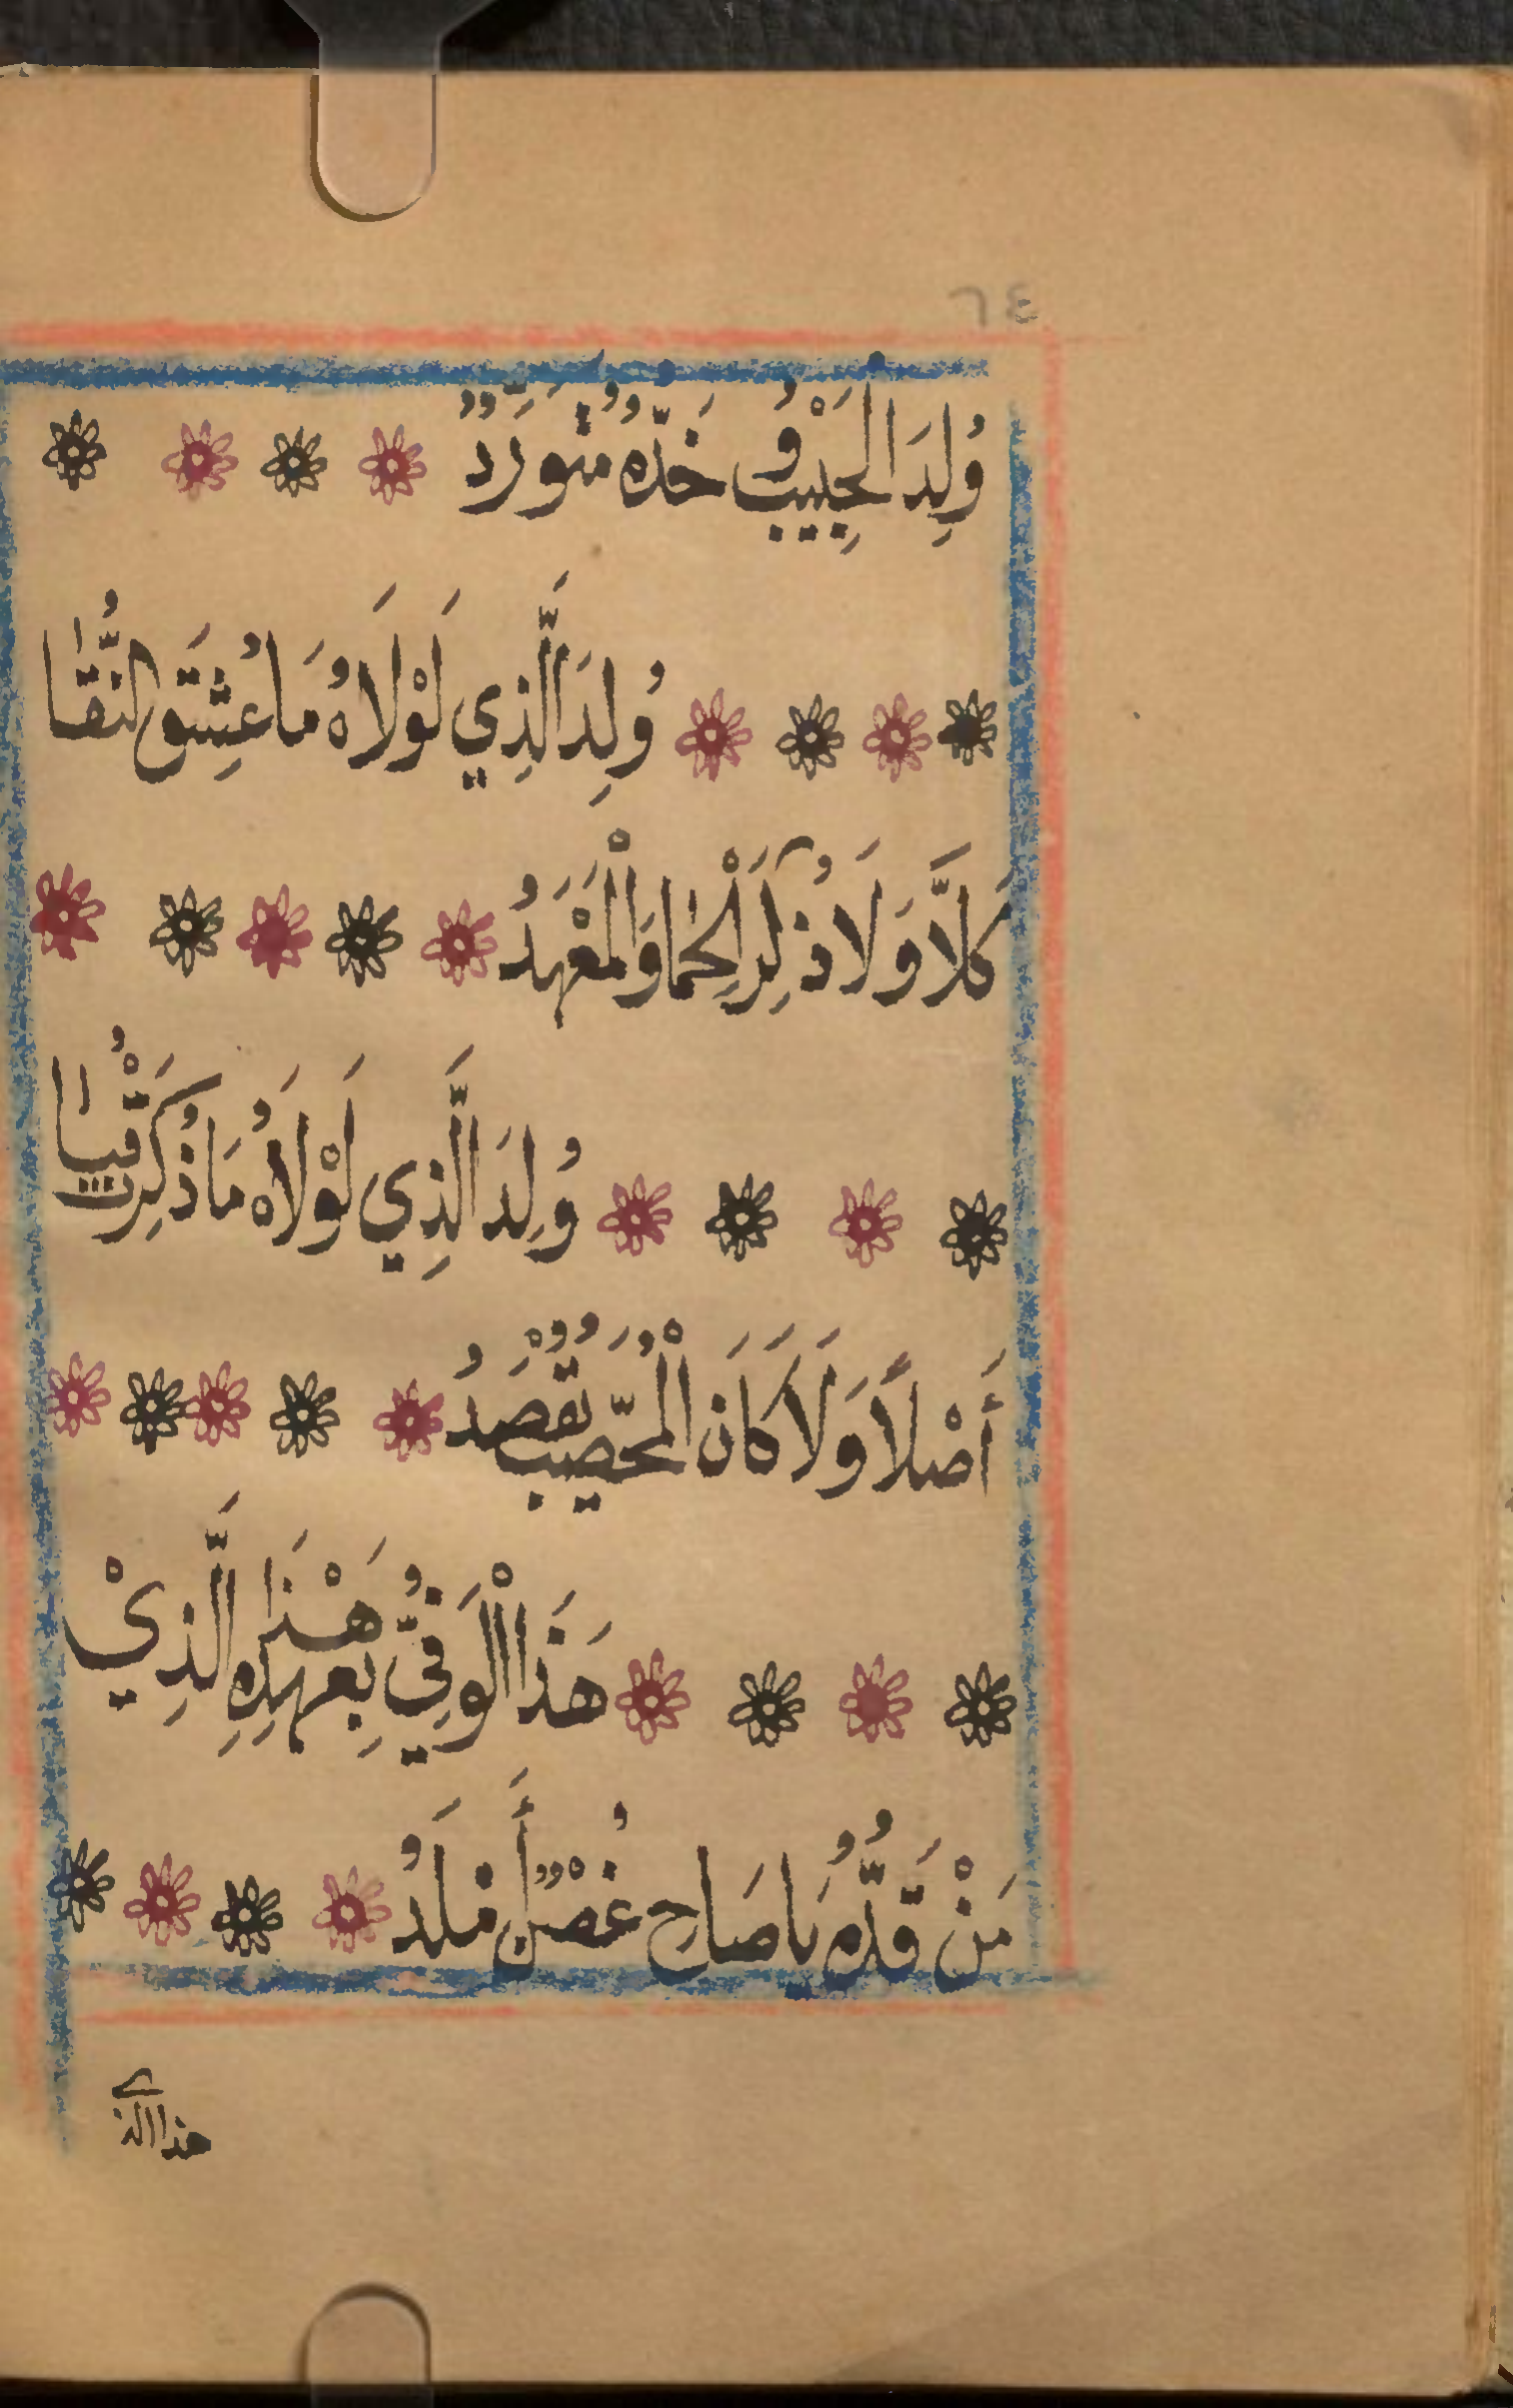 ٦٤
وُلِدَ الْحَبِيْبُ وَ خَدُّهُ مُتَوَرِّدٌ
وُلِدَ الَّذِي لَوْلَاهُ مَا عُشِقَ النَّقَا
كَلَّا وَلَا ذُكِرَ الْحِمَا وَالْمَعْهَدُ
وُلِدَ الَّذِي لَوْلَاهُ مَا ذُكِرَتْ قُبَا
أَصْلًا وَلَا كَانَ الْمُحَصَّبُ يُقْصَدُ
هَذَا الْوَفِيُّ بِعَهْدِهِ هَذَا الَّذِيْ
مَنْ قَدُّهُ يَا صَاحِ غُصْنٌ أَمْلَدُ
هذا الذي